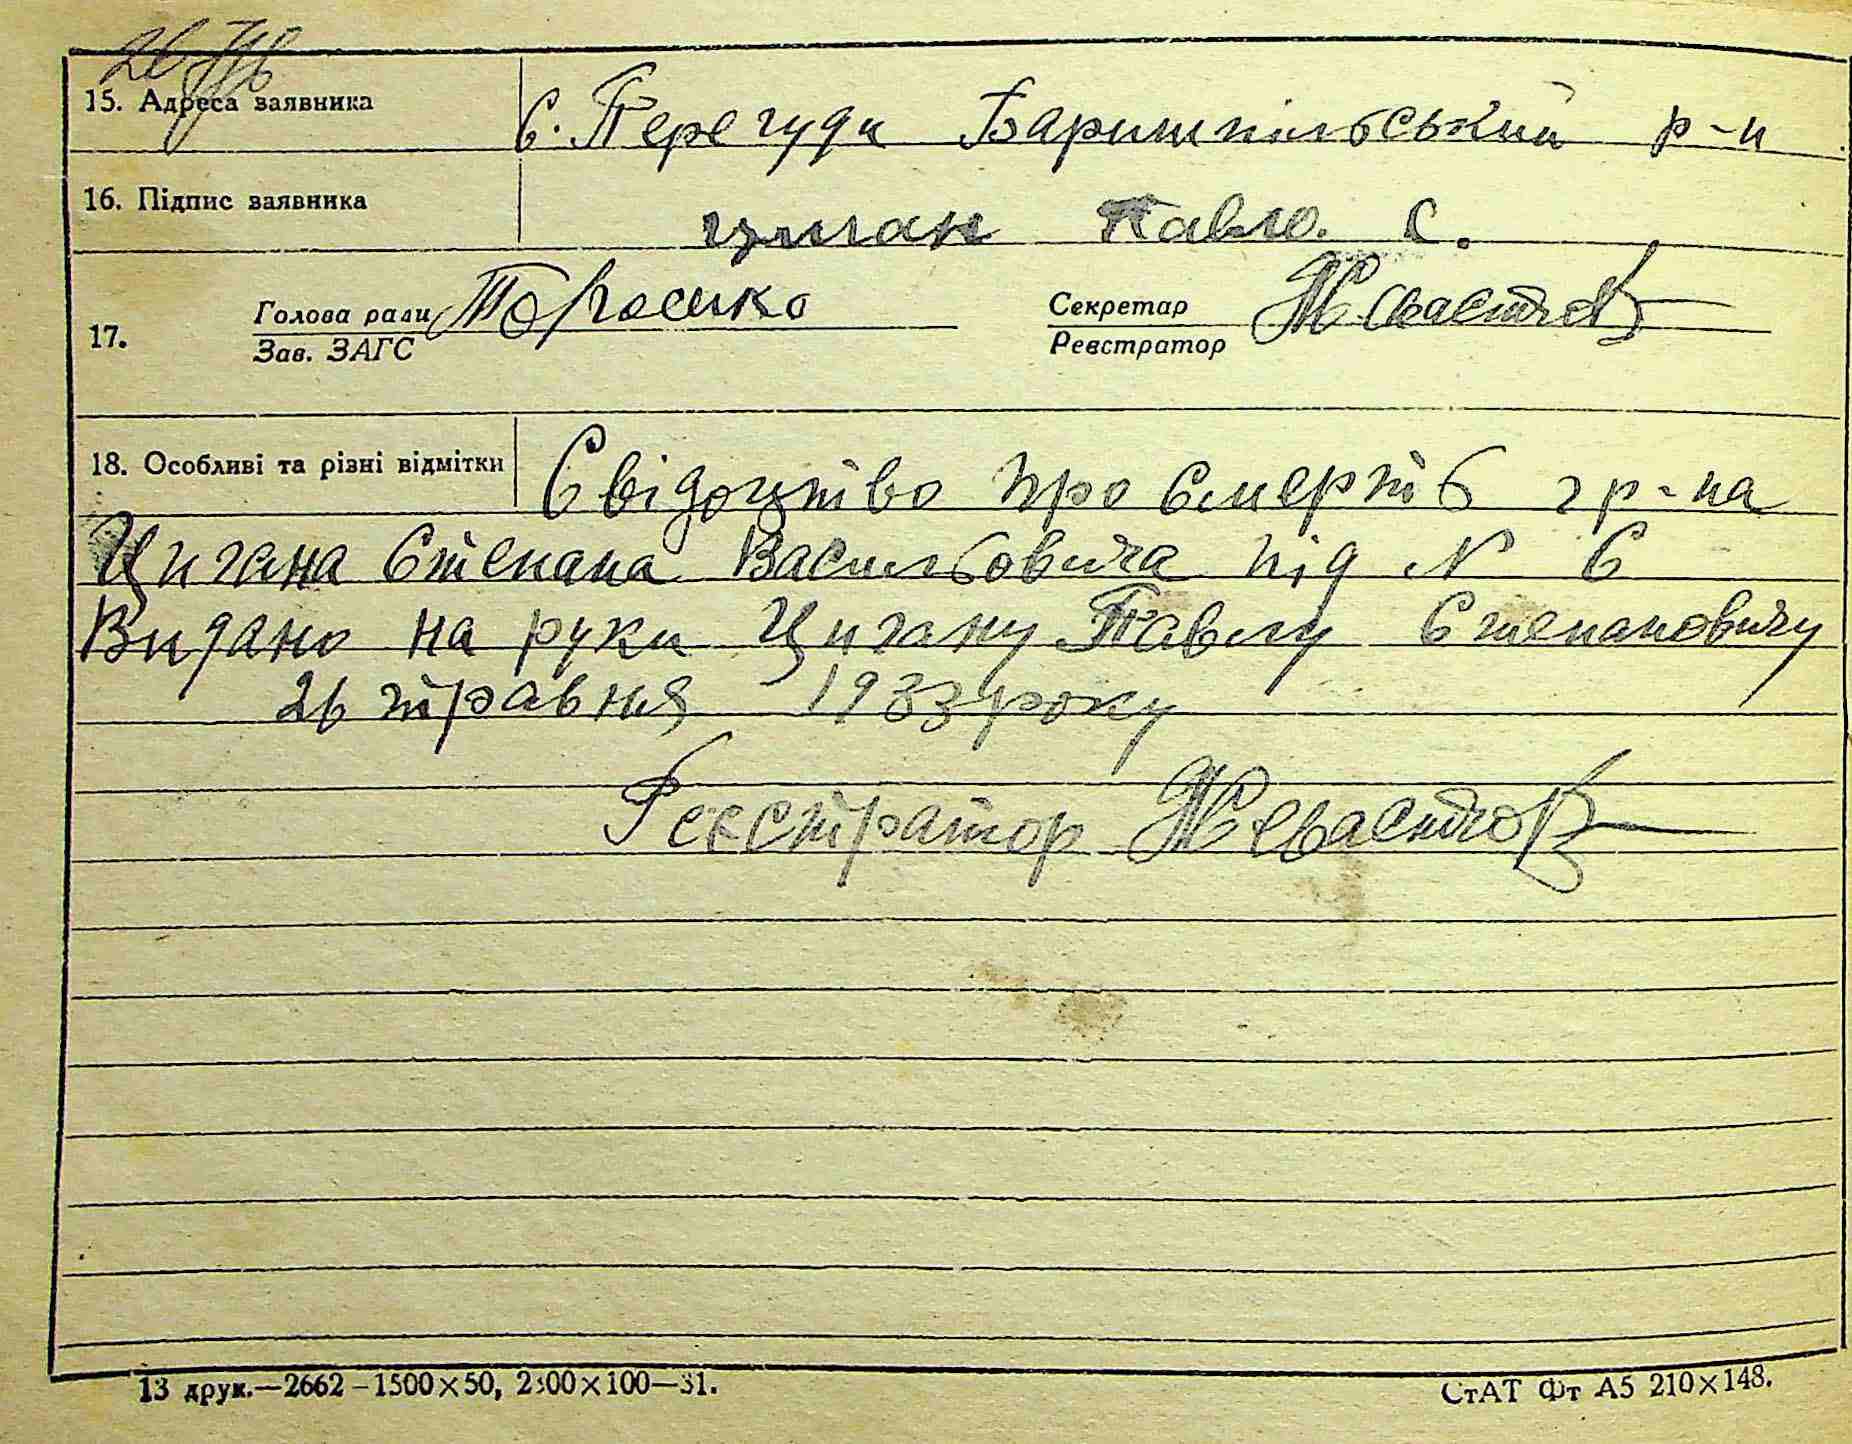 26
15. Адреса заявника с. Перегуди Баришпільський р-н
16. Підпис заявника циган Павло. С.
17. Голова ради Секретар
Зав. ЗАГС Реєстратор
18. Особливі та різні відмітки Свідоцтво про смерть гр-на
Цигана Степана Васильовича під N 6
Видано на руки Цигану Павлу Степановичу
26 травня 1933 року
Реєстратор
13 друк.—2662—1500×50, 2300×100—31.
СтАТ Фт А5 210×148.